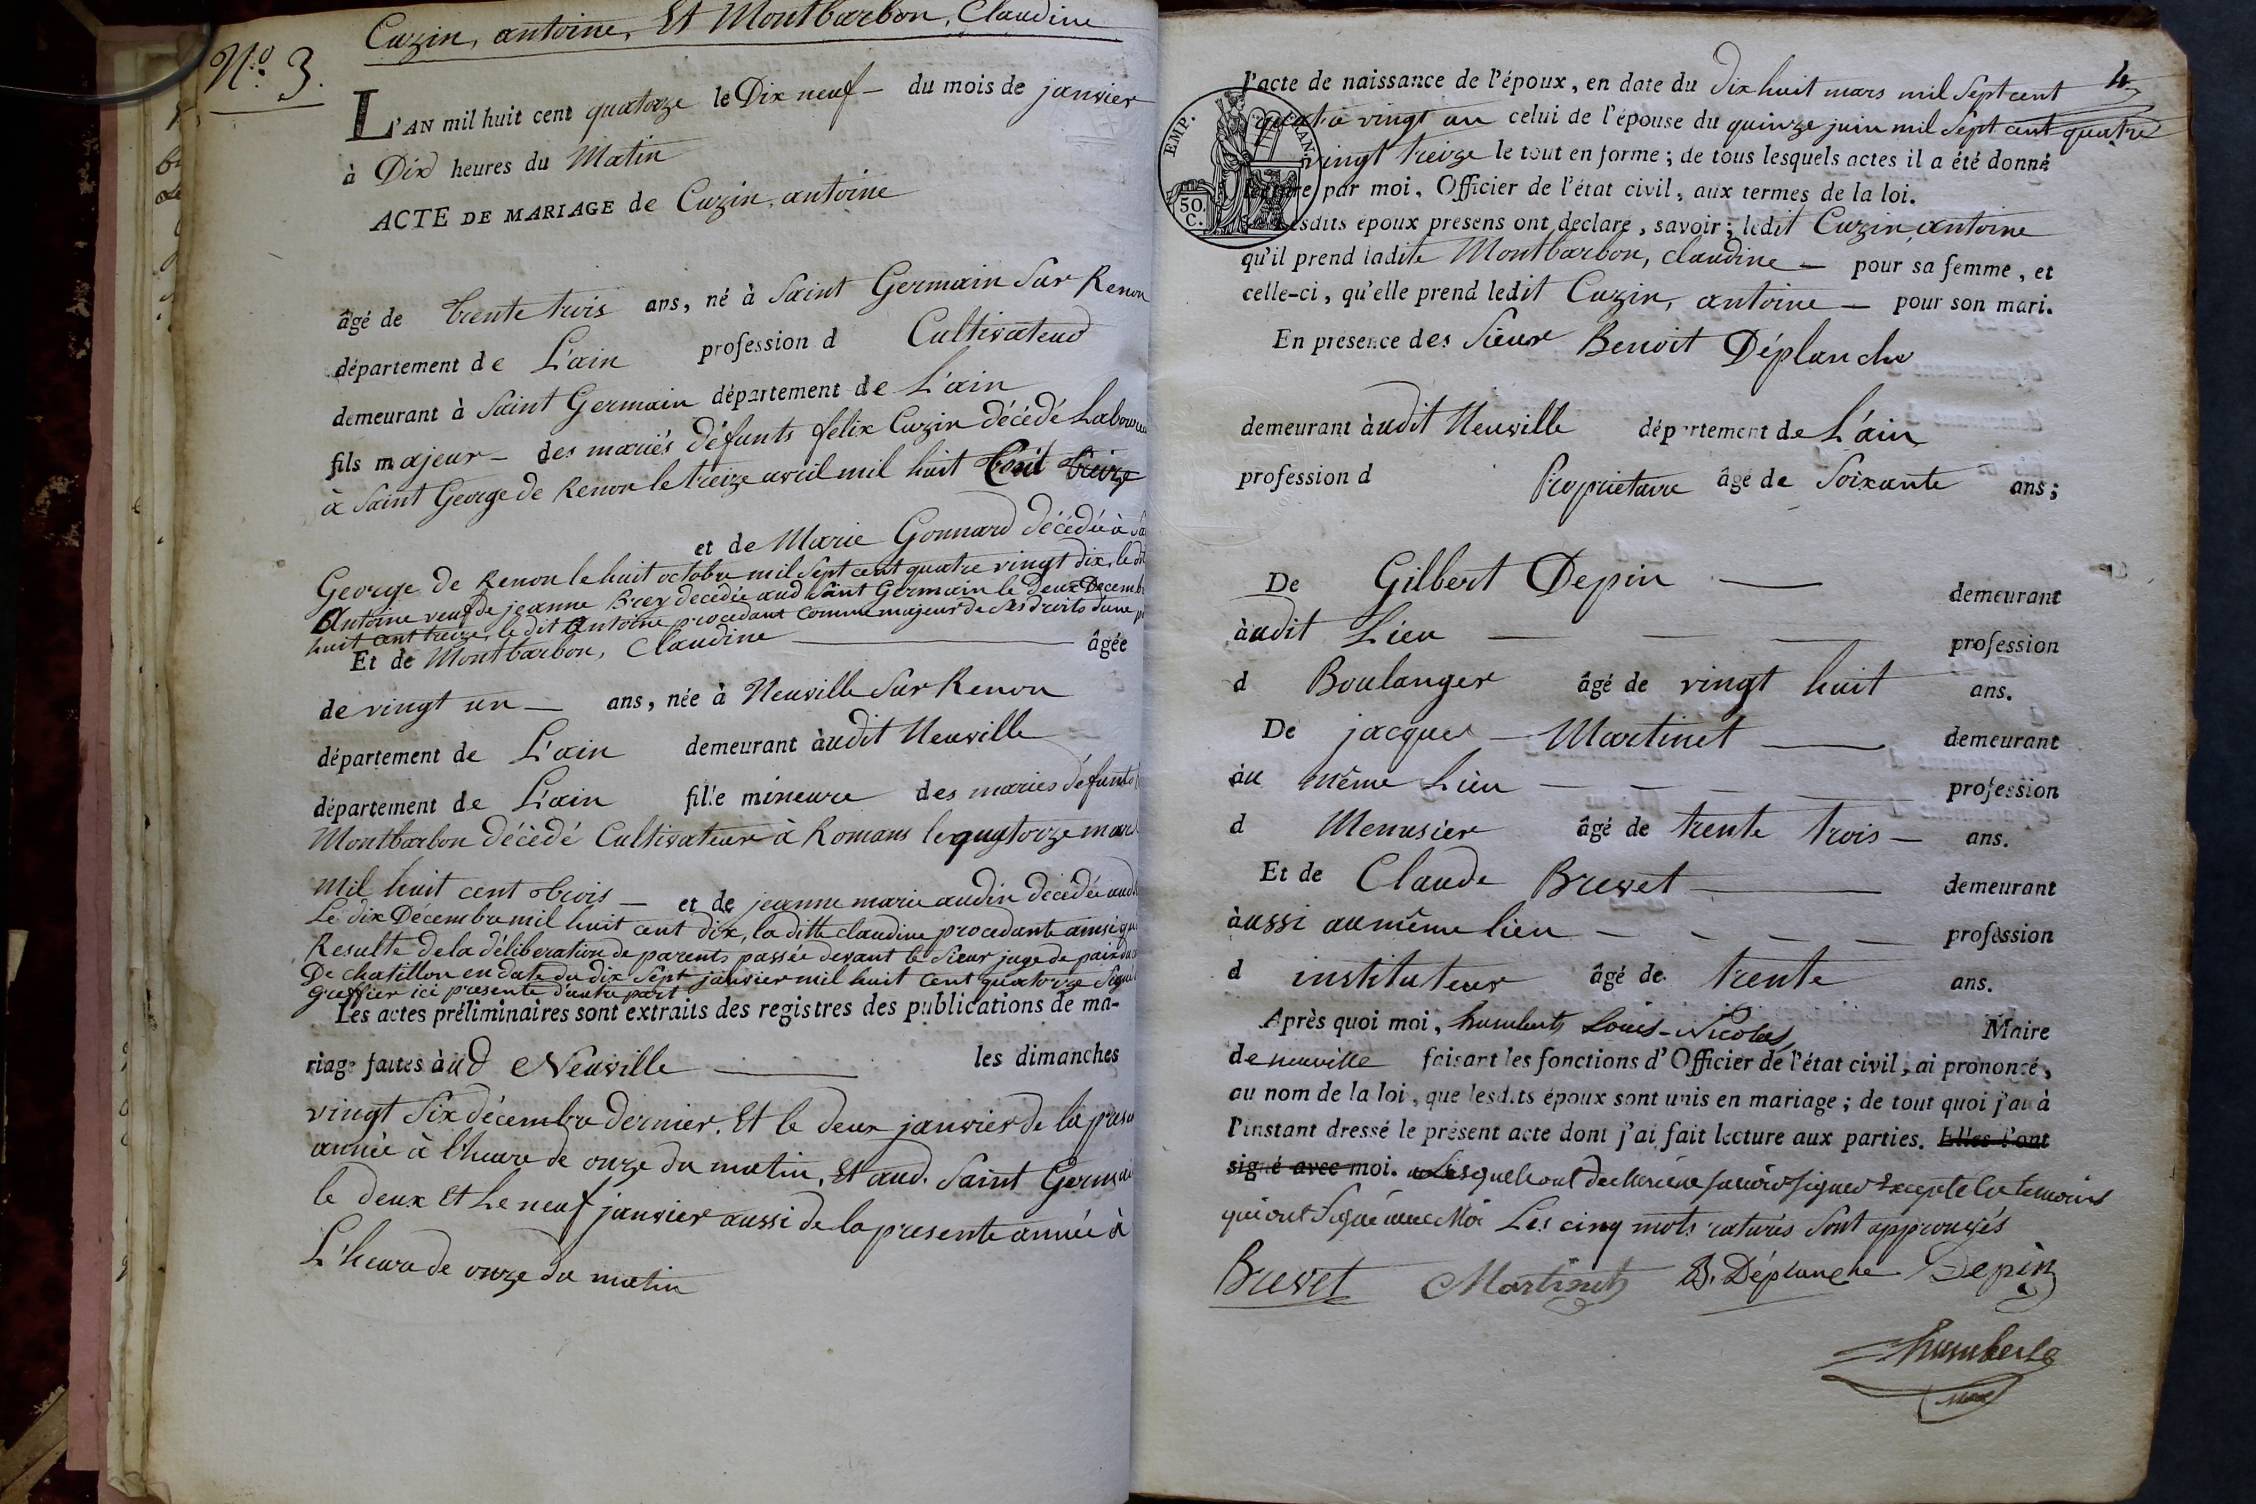 Cuzin, antoine, Et Montbarbon, Claudine
N.º 3.
L'AN mil huit cent quatorze le Dix neuf – du mois de janvier
à Dix heures du Matin
ACTE DE MARIAGE de Cuzin, antoine
âgé de trente trois ans, né à Saint Germain Sur Renon
département de L'ain profession d Cultivateur
demeurant à Saint Germain département de L'ain
fils majeur – des mariés défunts félix Cuzin décédé Laboureur
à Saint George de Renon le treize avril mil huit Cent treize
et de Marie Gonnard décédée à
George de Renon le huit octobre mil Sept cent quatre vingt dix, le dit
Antoine veuf de jeanne Brey decédée aud Saint Germain le deux Decembre
huit cent treize, le dit Antoine procedant comme majeur de ses droits d'une
Et de Montbarbon, Claudine âgée
de vingt un — ans, née à Neuville Sur Renon
département de L'ain demeurant àudit Neuville
département de L'ain fille mineure des mariés défunts
Montbarbon décédé Cultivateur à Romans le quatorze mars
mil huit cent trois — et de jeanne marie audin décédée aud
Le dix Décembre mil huit cent dix, la ditte claudine procedante ainsi que
Resulte de la déliberation de parents passée devant le Sieur juge de paix du
De chatillon en date du dix Sept janvier mil huit cent quatorze Signé
greffier ici presente d'autre part
Les actes préliminaires sont extraits des registres des publications de ma-
riage faites àud Neuville les dimanches
vingt Six décembre dernier, Et le deux janvier de la
année à l'heure de onze du matin, Et aud. Saint Germain
le deux Et Le neuf janvier aussi de la presente année à
L'heure de onze du matin
4
l'acte de naissance de l'époux, en date du dix huit mars mil Sept cent
quatre vingt un celui de l'épouse du quinze juin mil Sept cent quatre
vingt treize le tout en forme; de tous lesquels actes il a été donné
lecture par moi, Officier de l'état civil, aux termes de la loi.
EMP. FRAN.
50 C.
Lesdits époux présens ont déclaré, savoir; ledit Cuzin, antoine
qu'il prend ladite Montbarbon, claudine — pour sa femme, et
celle-ci, qu'elle prend ledit Cuzin, antoine — pour son mari.
En présence des Sieur Benoit Déplanche
demeurant àudit Neuville département de L'ain
profession d Propriétaire âgé de Soixante ans;
De Gilbert Depin — demeurant
àudit Lieu — — — profession
d Boulanger âgé de vingt huit ans.
De jacques – Martinet — demeurant
àu même Lieu — — — profession
d Menusier âgé de trente trois – ans.
Et de Claude Brevet — demeurant
àussi au même lieu — — — profession
d instituteur âgé de trente ans.
Après quoi moi, humbert Louis-Nicolas, Maire
de neuville faisant les fonctions d'Officier de l'état civil, ai prononcé,
au nom de la loi, que lesdits époux sont unis en mariage; de tout quoi j'ai à
l'instant dressé le présent acte dont j'ai fait lecture aux parties. Elles l'ont
signé avec moi. Lesquels ont declaré ne savoir signer Excepté les temoins
qui ont Signé avec Moi Les cinq mots raturés Sont approuvés
Brevet Martinet B. Déplanche Depin
humbert